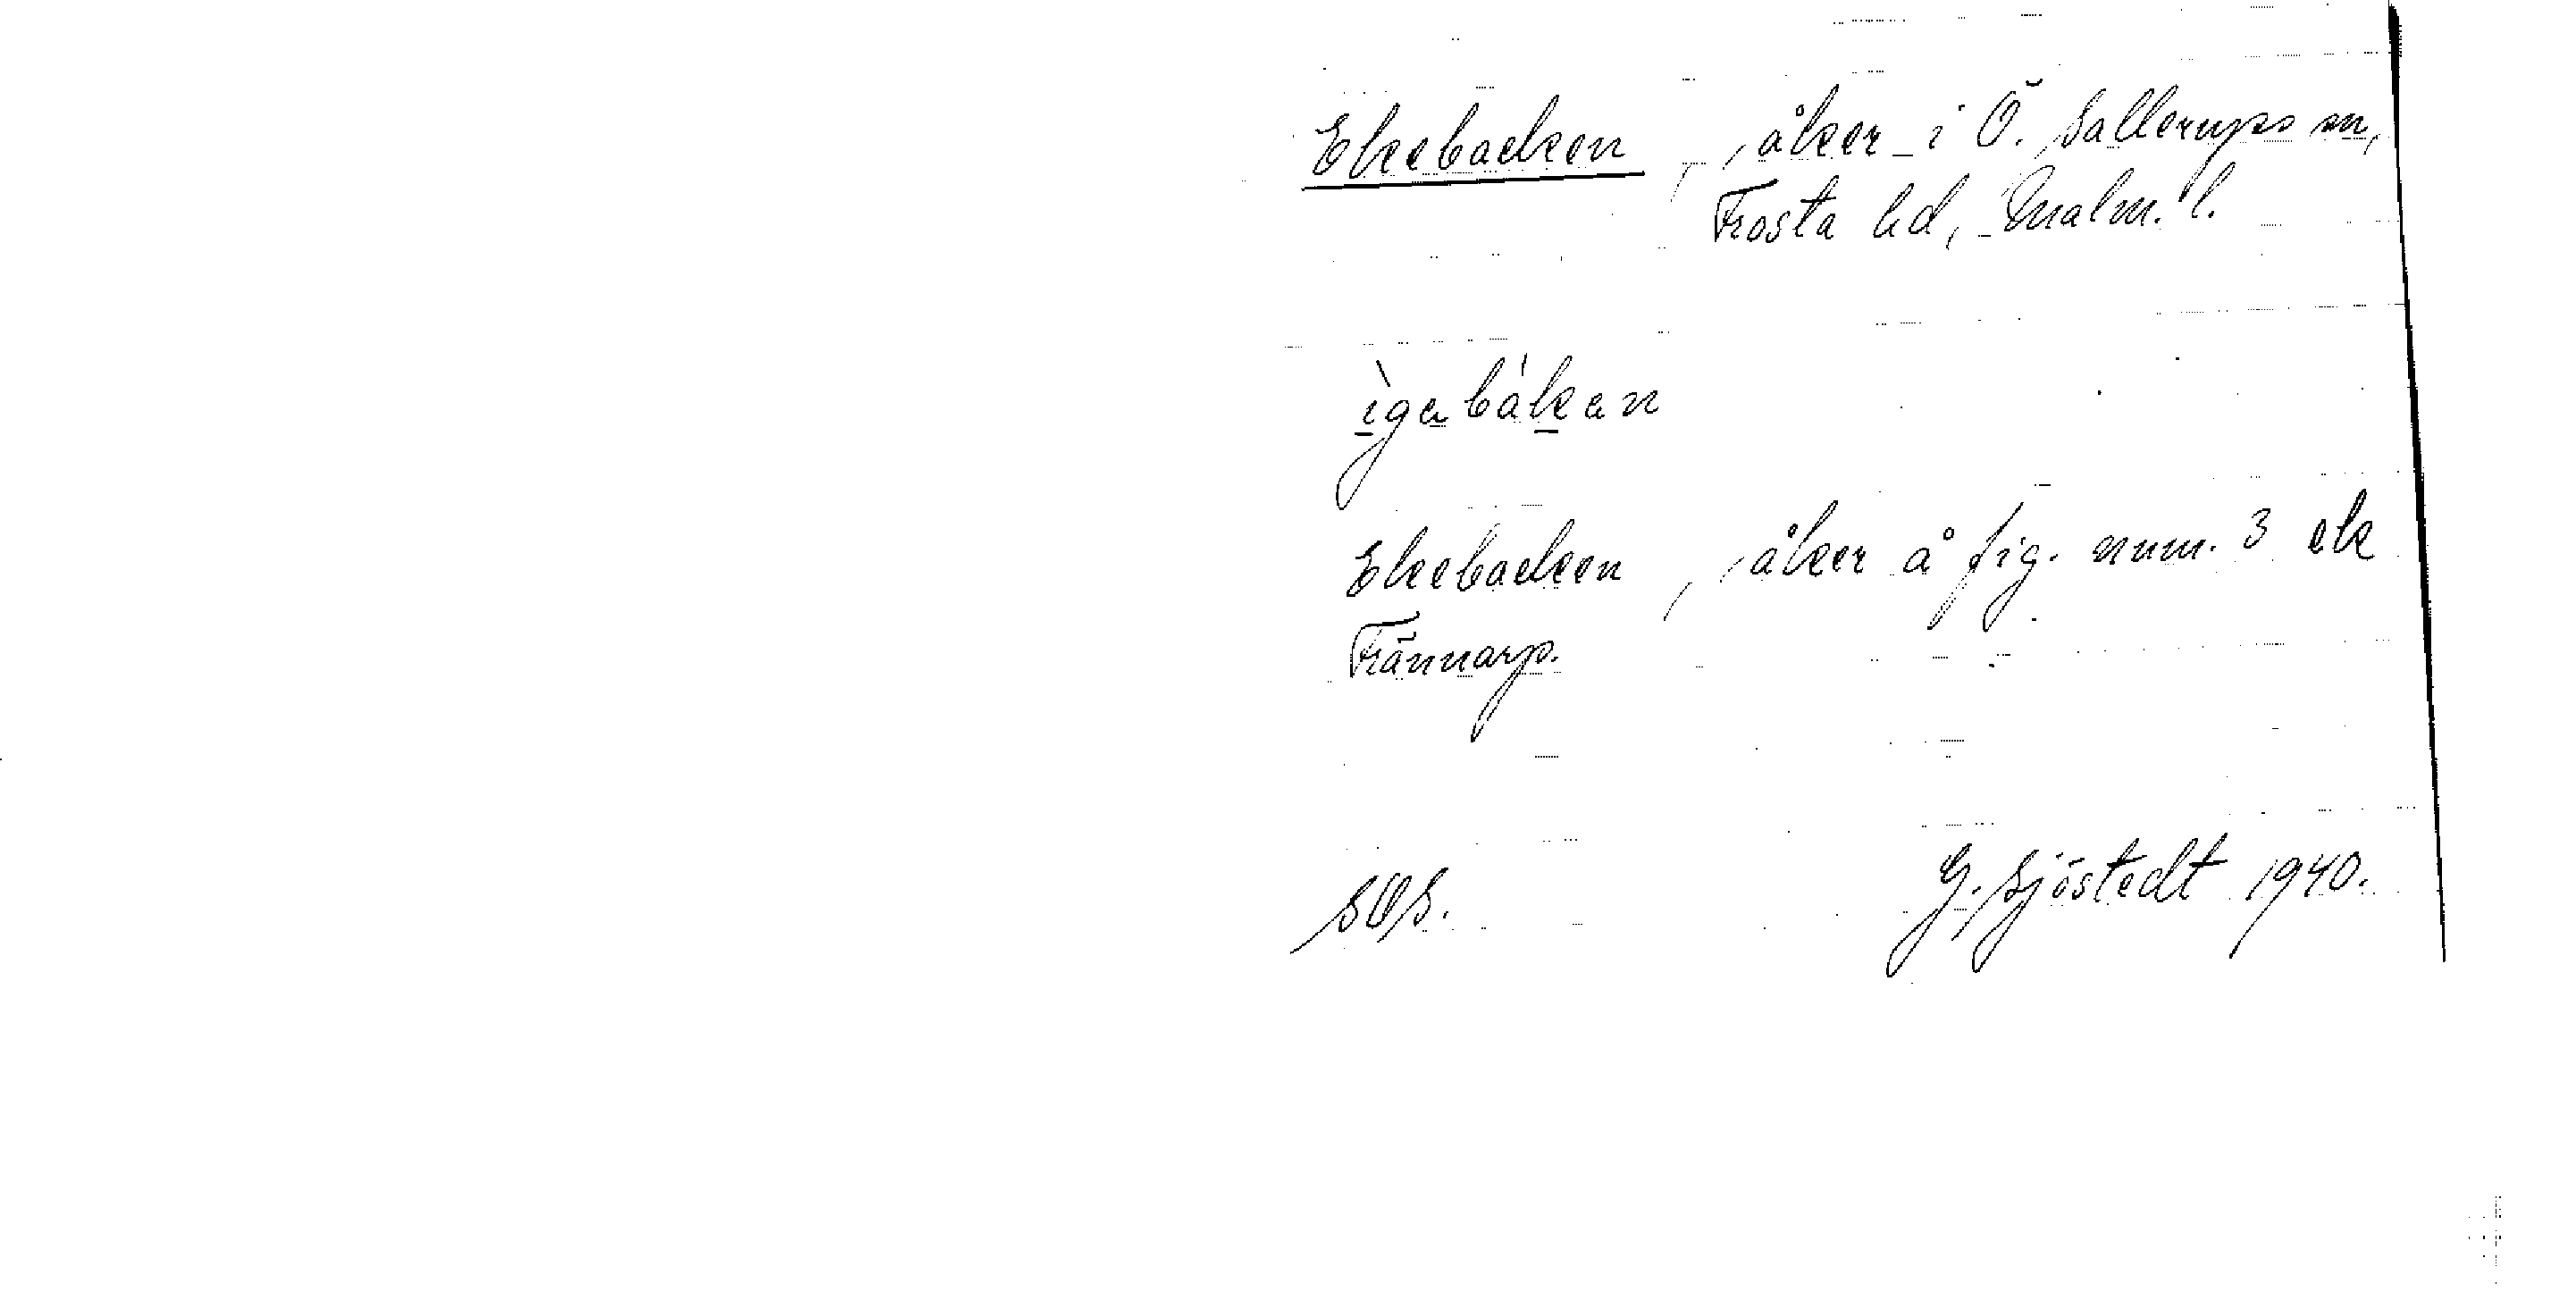 Ekebacken, åker i Ö. Sallerups sn,
Frosta hd, Malm. l.
ìgabákan
Ekebacken, åker å fig. num. 3 ek
Frännarp.
SOS. G. Sjöstedt 1940.